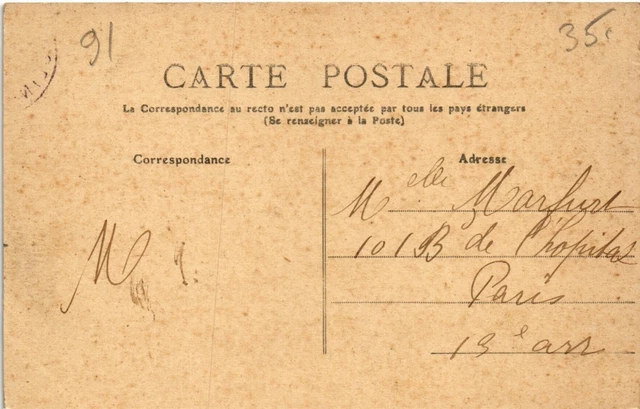 91
35
CARTE POSTALE
La Correspondance au recto n'est pas acceptée par tous les pays étrangers
(Se renseigner à la Poste)
Correspondance
Adresse
Melle Marfurt
101 B de l'hopital
Paris
13e arr
M